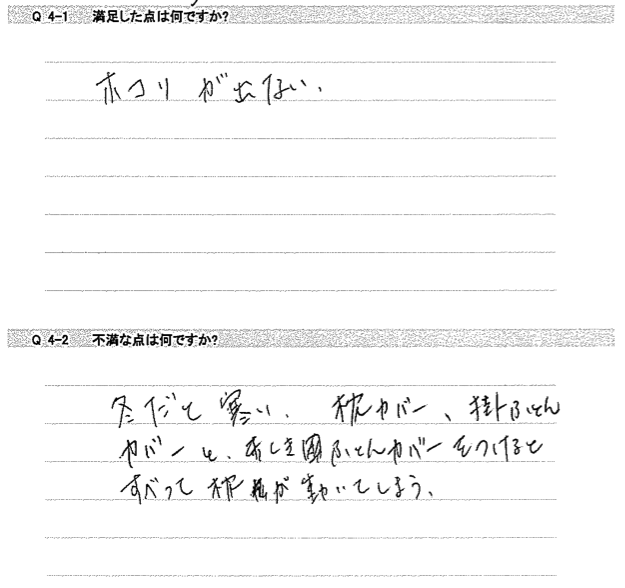 Q 4-1 満足した点は何ですか?
ホコリが出ない.
Q 4-2 不満な点は何ですか?
冬だと寒い. 枕カバー、掛ふとん
カバーと、しきふとんカバーをつけると
すべって枕が動いてしまう.